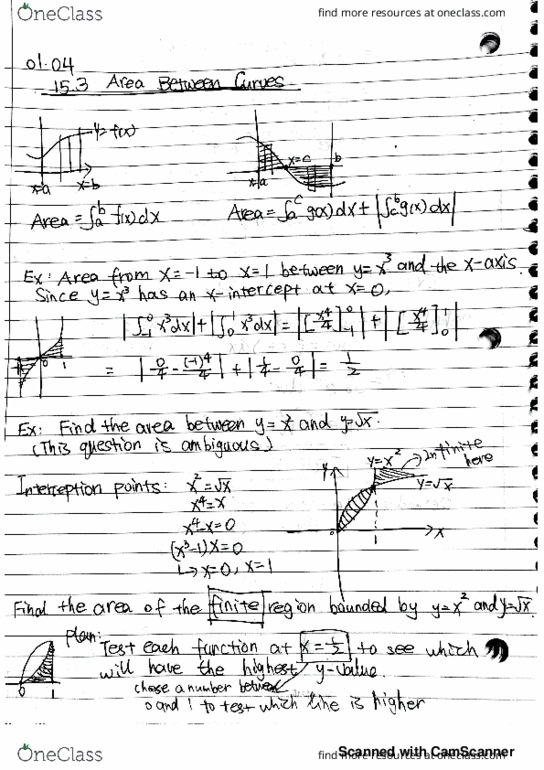 OneClass
find more resources at oneclass.com
01.04
15.3 Area Between Curves
y=f(x)
x=a x=b
x=a x=c b
Area = ∫ₐᵇ f(x)dx
Area = ∫ₐᶜ g(x)dx + |∫꜀ᵇ g(x)dx|
Ex: Area from x=-1 to x=1 between y=x³ and the x-axis.
Since y=x³ has an x-intercept at x=0,
|∫₋₁⁰ x³dx| + |∫₀¹ x³dx| = |[x⁴/4]₋₁⁰| + |[x⁴/4]₀¹|
-1 0 1
= |0/4 - (-1)⁴/4| + |1/4 - 0/4| = 1/2
Ex: Find the area between y=x² and y=√x.
(This question is ambiguous)
y=x² → Infinite here
y=√x
y
x
Interception points: x²=√x
x⁴=x
x⁴-x=0
(x³-1)x=0
↳ x=0, x=1
Find the area of the finite region bounded by y=x² and y=√x.
Plan:
Test each function at x=1/2 to see which
will have the highest y-value.
choose a number between
0 and 1 to test which line is higher
0 1
OneClass
find more resources at oneclass.com
Scanned with CamScanner